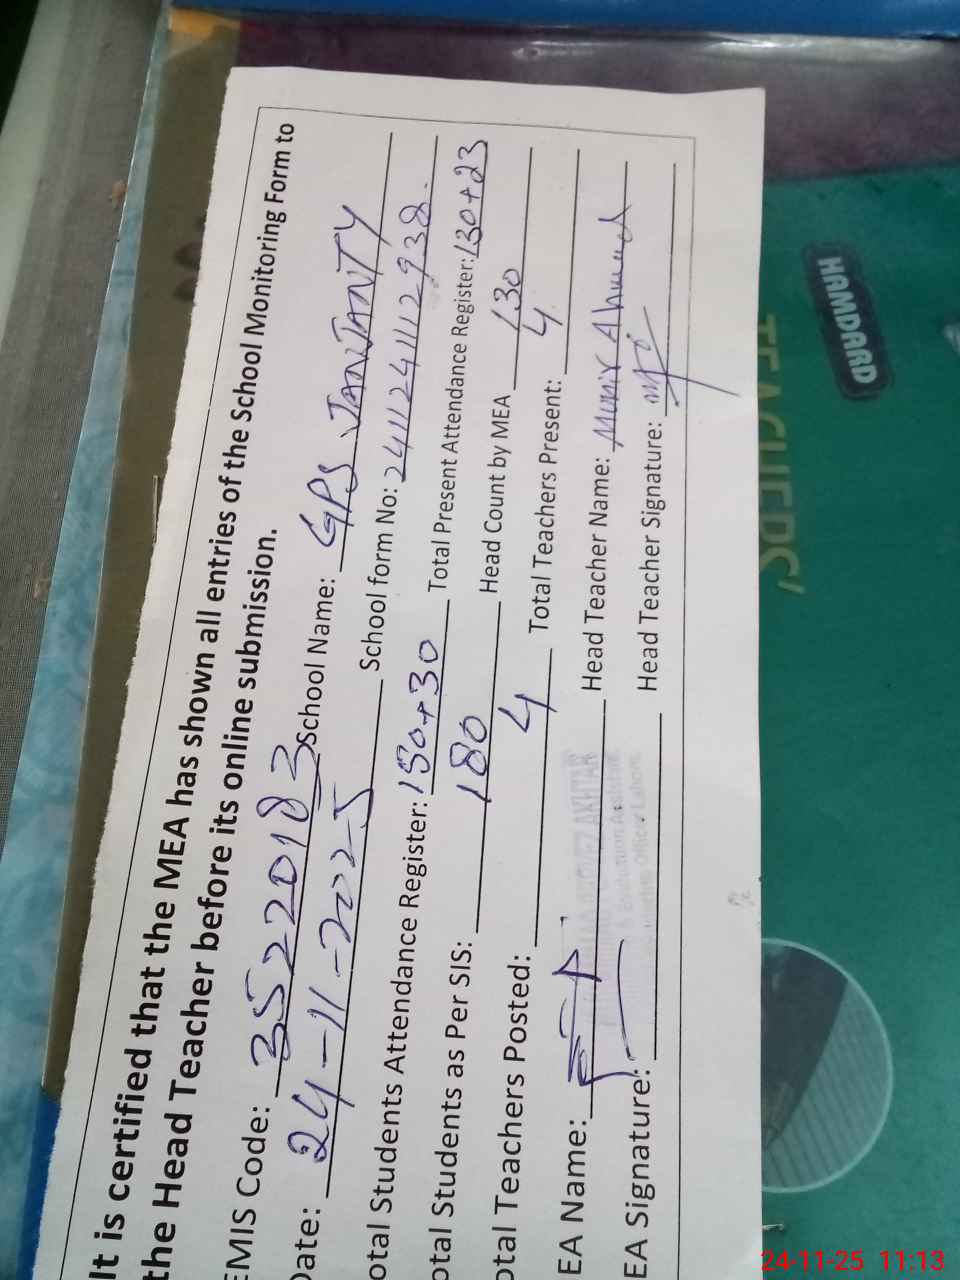 It is certified that the MEA has shown all entries of the School Monitoring Form to
the Head Teacher before its online submission.
EMIS Code: 35220183 School Name: GPS JANJANTY
Date: 24-11-2025 School form No: 24111241112938
otal Students Attendance Register: 150+30 Total Present Attendance Register: 130+23
otal Students as Per SIS: 180 Head Count by MEA 130
otal Teachers Posted: 4 Total Teachers Present: 4
EA Name: Head Teacher Name: Munir Ahmed
EA Signature: Head Teacher Signature:
HAMDARD
TEACHERS'
24-11-25 11:13